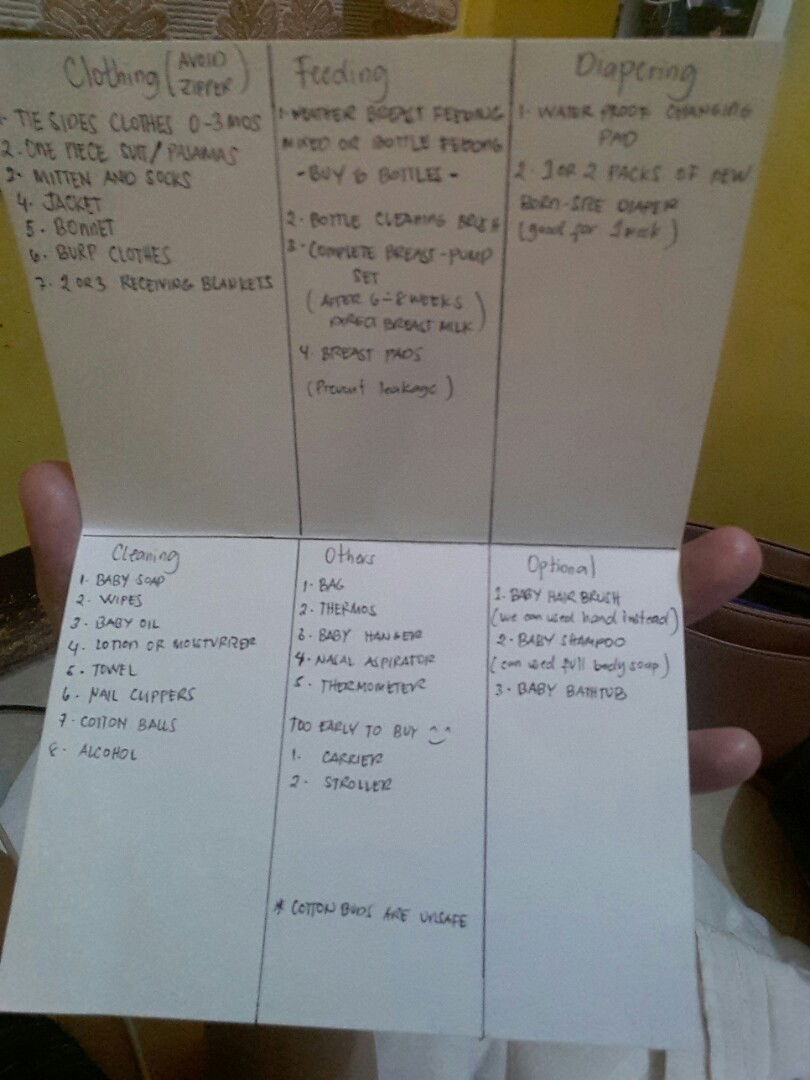 Clothing (AVOID ZIPPER)
1. TIE SIDES CLOTHES 0-3 MOS
2. ONE PIECE SUIT/PAJAMAS
3. MITTEN AND SOCKS
4. JACKET
5. BONNET
6. BURP CLOTHES
7. 2 OR 3 RECEIVING BLANKETS
Feeding
1. WEATHER BREAST FEEDING
MIXED OR BOTTLE FEEDING
- BUY 6 BOTTLES -
2. BOTTLE CLEANING BRUSH
3. COMPLETE BREAST-PUMP
SET
(AFTER 6-8 WEEKS
DIRECT BREAST MILK)
4. BREAST PADS
(Prevent leakage)
Diapering
1. WATER PROOF CHANGING
PAD
2. 1 OR 2 PACKS OF NEW
BORN-SIZE DIAPER
(good for 1 week)
Cleaning
1. BABY SOAP
2. WIPES
3. BABY OIL
4. LOTION OR MOISTURIZER
5. TOWEL
6. NAIL CLIPPERS
7. COTTON BALLS
8. ALCOHOL
Others
1. BAG
2. THERMOS
3. BABY HANGER
4. NASAL ASPIRATOR
5. THERMOMETER
TOO EARLY TO BUY
1. CARRIER
2. STROLLER
* COTTON BUDS ARE UNSAFE
Optional
1. BABY HAIR BRUSH
(we can used hand instead)
2. BABY SHAMPOO
(can used full body soap)
3. BABY BATHTUB